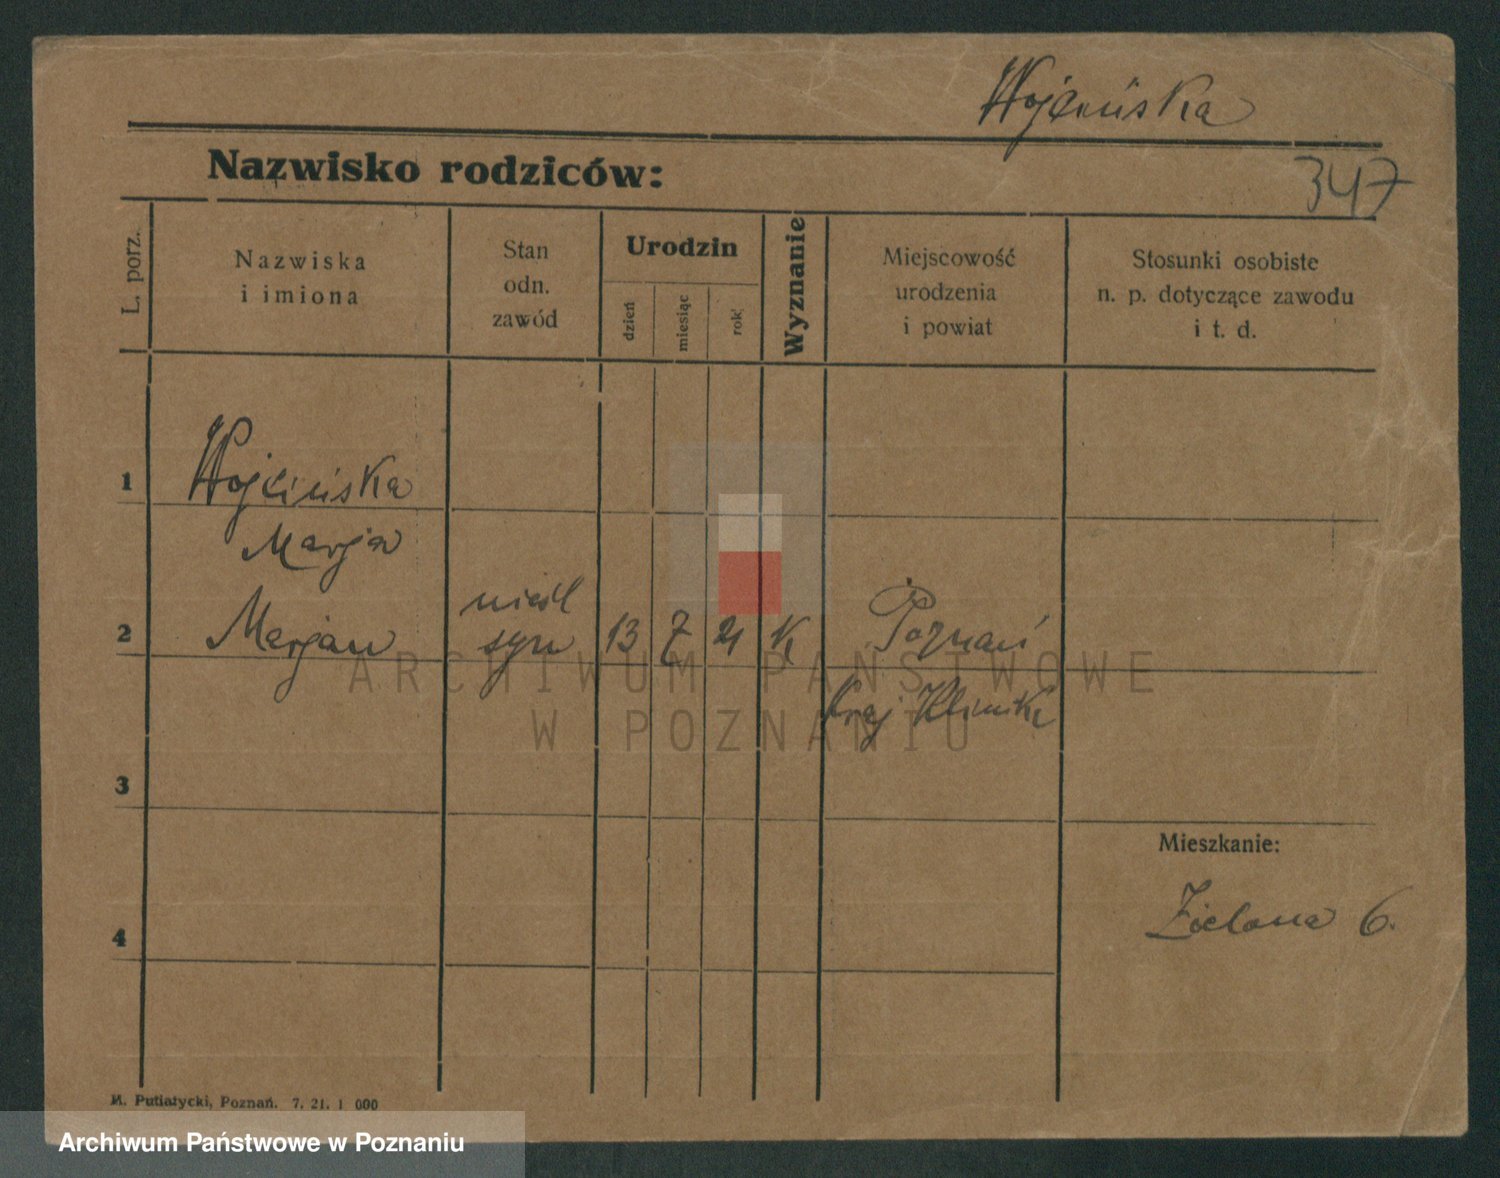 Wojcińska
Nazwisko rodziców:
347
L. porz.
Nazwiska
i imiona
Stan
odn.
zawód
Urodzin
dzień
miesiąc
rok
Wyznanie
Miejscowość
urodzenia
i powiat
Stosunki osobiste
n. p. dotyczące zawodu
i t. d.
1
Wojcińska
Marja
2
Marjan
nieśl
syn
13
7
21
K
Poznań
Kraj Klinika
3
Mieszkanie:
Zielona 6.
4
M. Putiatycki, Poznań. 7. 21. 1 000
ARCHIWUM PAŃSTWOWE
W POZNANIU
Archiwum Państwowe w Poznaniu